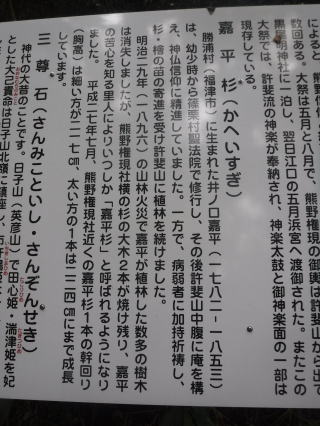 によると、熊野
数回ある。大祭は五月と八月で、熊野権現の御輿は許斐山から出て
黒尊明神社に一泊し、翌日江口の五月浜宮へ渡御された。またこの
大祭では、許斐流の神楽が奉納され、神楽太鼓と御神楽面の一部は
現存している。
嘉平杉(かへいすぎ)
勝浦村(福津市)に生まれた井ノ口嘉平(一七八二-一八五三)
は、幼少時から篠栗村聖法院で修行し、その後許斐山中腹に庵を構
え、神仏信仰に精進していました。一方で、病弱者に加持祈祷し、
杉・檜の苗の寄進を受け許斐山に植林を続けました。
明治二九年(一八九六)の山林火災で嘉平が植林した数多の樹木
は消失しましたが、熊野権現社横の杉の大木2本が焼け残り、嘉平
の苦心を知る里人によりいつしか「嘉平杉」と呼ばれるようになり
ました。 平成二七年七月、熊野権現社近くの嘉平杉1本の幹回り
(胸高)は細い方が二一七㎝、太い方の1本は二二四㎝にまで成長
しています。
三尊石(さんみこといし・さんぞんせき)
神代の大昔のことです。日子山(英彦山)で田心姫・湍津姫を妃
とした大己貴命は日子山北嶺に鎮座し